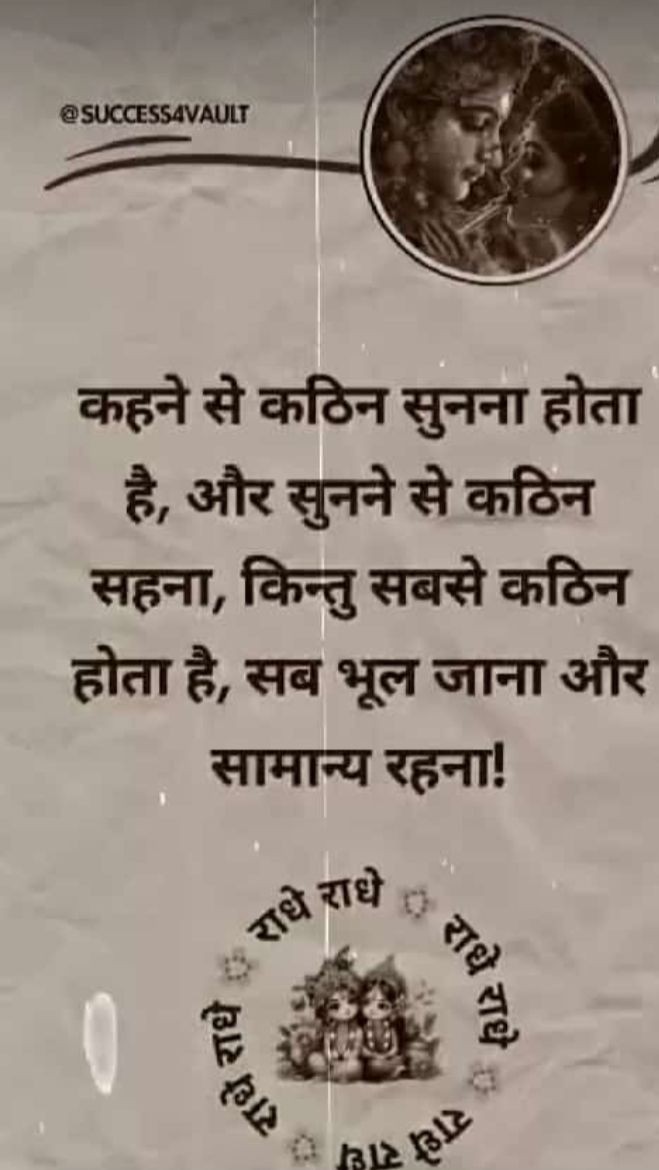 @SUCCESS4VAULT
कहने से कठिन सुनना होता
है, और सुनने से कठिन
सहना, किन्तु सबसे कठिन
होता है, सब भूल जाना और
सामान्य रहना!
राधे राधे
राधे राधे
राधे राधे
राधे राधे